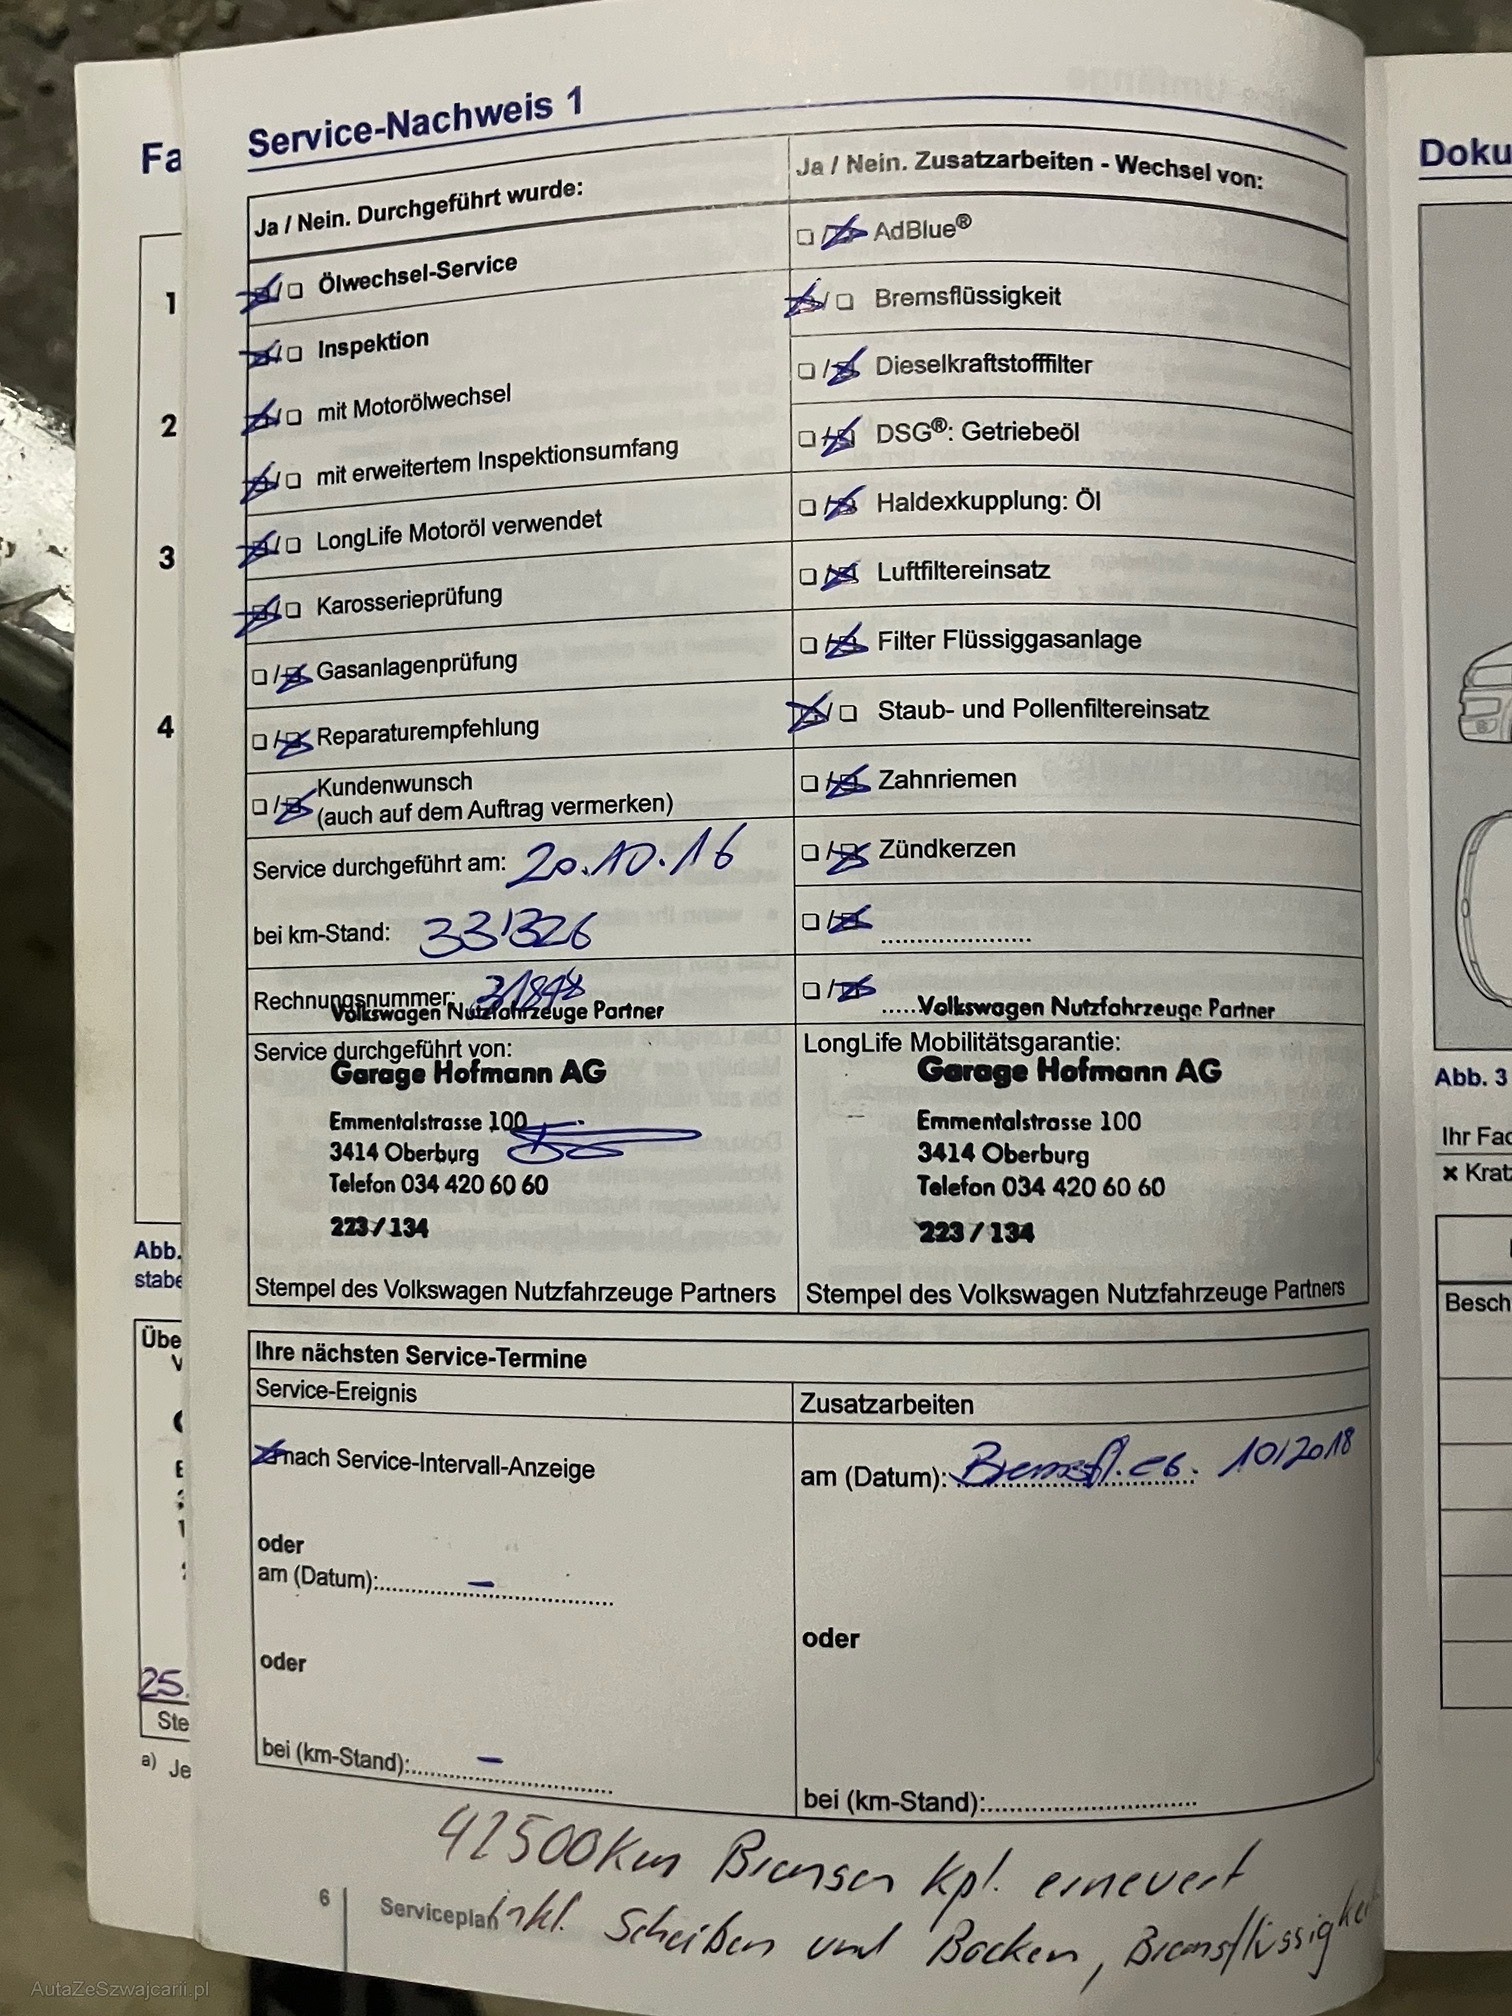 Service-Nachweis 1
Ja / Nein. Durchgeführt wurde:
Ölwechsel-Service
Inspektion
mit Motorölwechsel
mit erweitertem Inspektionsumfang
LongLife Motoröl verwendet
Karosserieprüfung
Gasanlagenprüfung
Reparaturempfehlung
Kundenwunsch
(auch auf dem Auftrag vermerken)
Service durchgeführt am: 20.10.16
bei km-Stand: 33'326
Rechnungsnummer:
Volkswagen Nutzfahrzeuge Partner
Service durchgeführt von:
Garage Hofmann AG
Emmentalstrasse 100
3414 Oberburg
Telefon 034 420 60 60
223 / 134
Stempel des Volkswagen Nutzfahrzeuge Partners
Ja / Nein. Zusatzarbeiten - Wechsel von:
AdBlue®
Bremsflüssigkeit
Dieselkraftstofffilter
DSG®: Getriebeöl
Haldexkupplung: Öl
Luftfiltereinsatz
Filter Flüssiggasanlage
Staub- und Pollenfiltereinsatz
Zahnriemen
Zündkerzen
Volkswagen Nutzfahrzeuge Partner
LongLife Mobilitätsgarantie:
Garage Hofmann AG
Emmentalstrasse 100
3414 Oberburg
Telefon 034 420 60 60
223 / 134
Stempel des Volkswagen Nutzfahrzeuge Partners
Ihre nächsten Service-Termine
Service-Ereignis
nach Service-Intervall-Anzeige
oder
am (Datum): –
oder
bei (km-Stand): –
Zusatzarbeiten
am (Datum): Bremsfl. 10/2018
oder
bei (km-Stand):
42500km Bremsen kpl. erneuert
inkl. Scheiben und Backen, Bremsflüssigkeit
6 Serviceplan
Fa
1
2
3
4
Abb.
stabe
Übe
25.
Ste
a) Je
Doku
Abb. 3
Ihr Fac
✖ Kratz
Besch
AutaZeSzwajcarii.pl